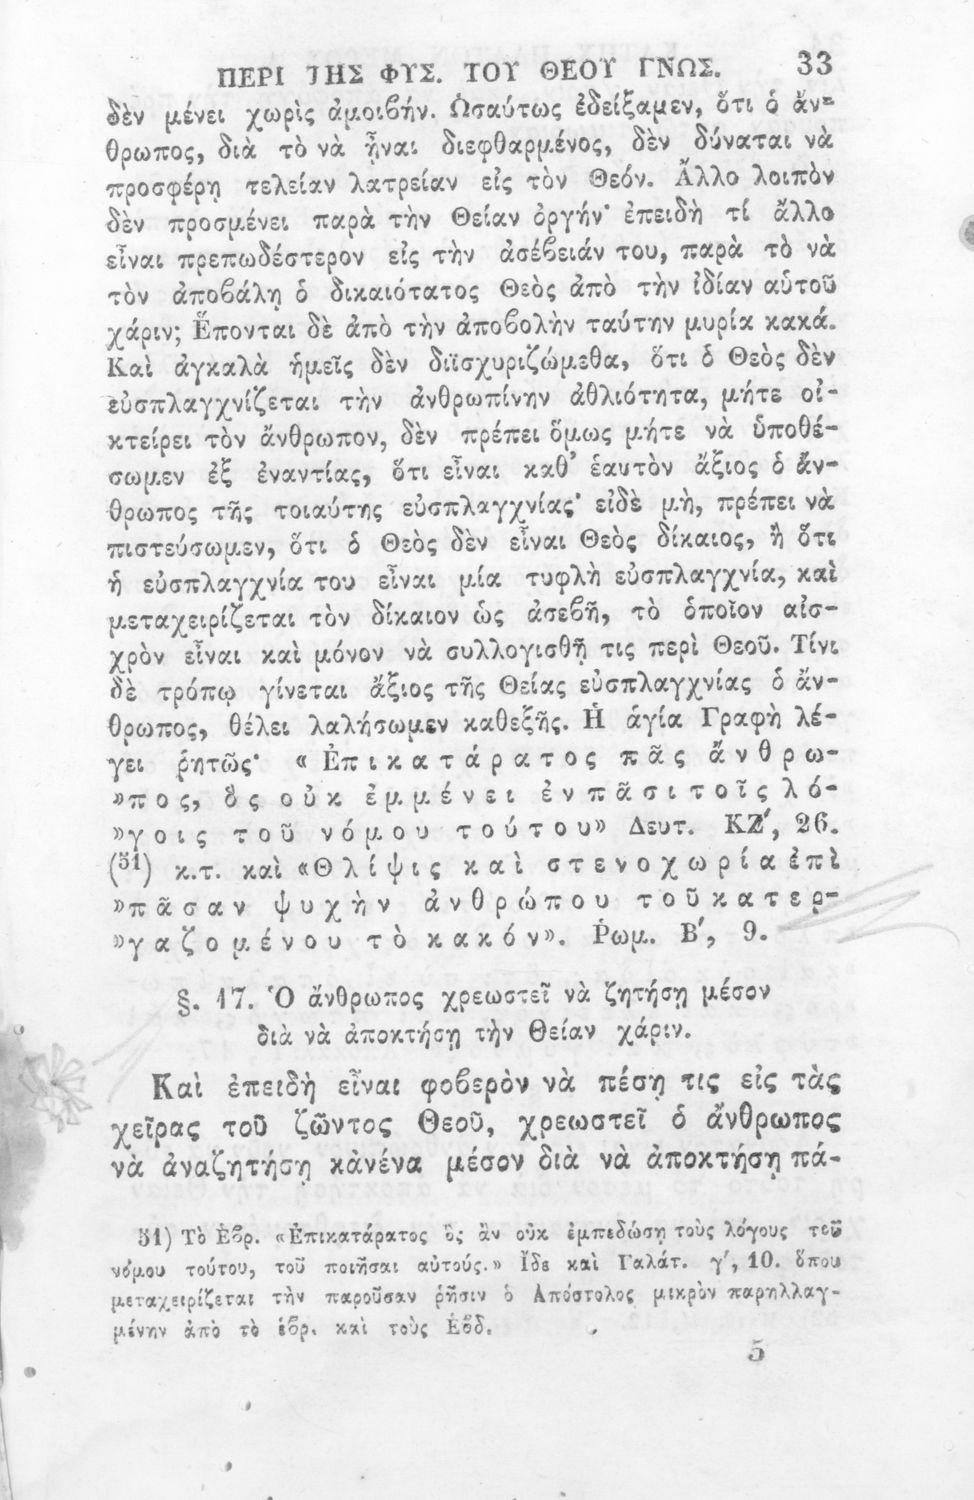 ΠΕΡΙ ΤΗΣ ΦΥΣ. ΤΟΥ ΘΕΟΥ ΓΝΩΣ. 33
δὲν μένει χωρὶς ἀμοιβήν. Ὡσαύτως ἐδείξαμεν, ὅτι ὁ ἄν-
θρωπος, διὰ τὸ νὰ ᾖναι διεφθαρμένος, δὲν δύναται νὰ
προσφέρῃ τελείαν λατρείαν εἰς τὸν Θεόν. Ἄλλο λοιπὸν
δὲν προσμένει παρὰ τὴν Θείαν ὀργήν· ἐπειδὴ τί ἄλλο
εἶναι πρεπωδέστερον εἰς τὴν ἀσέβειάν του, παρὰ τὸ νὰ
τὸν ἀποβάλῃ ὁ δικαιότατος Θεὸς ἀπὸ τὴν ἰδίαν αὑτοῦ
χάριν; Ἕπονται δὲ ἀπὸ τὴν ἀποβολὴν ταύτην μυρία κακά.
Καὶ ἀγκαλὰ ἡμεῖς δὲν διϊσχυριζώμεθα, ὅτι ὁ Θεὸς δὲν
εὐσπλαγχνίζεται τὴν ἀνθρωπίνην ἀθλιότητα, μήτε οἰ-
κτείρει τὸν ἄνθρωπον, δὲν πρέπει ὅμως μήτε νὰ ὑποθέ-
σωμεν ἐξ ἐναντίας, ὅτι εἶναι καθ' ἑαυτὸν ἄξιος ὁ ἄν-
θρωπος τῆς τοιαύτης εὐσπλαγχνίας· εἰδὲ μὴ, πρέπει νὰ
πιστεύσωμεν, ὅτι ὁ Θεὸς δὲν εἶναι Θεὸς δίκαιος, ἢ ὅτι
ἡ εὐσπλαγχνία του εἶναι μία τυφλὴ εὐσπλαγχνία, καὶ
μεταχειρίζεται τὸν δίκαιον ὡς ἀσεβῆ, τὸ ὁποῖον αἰσ-
χρὸν εἶναι καὶ μόνον νὰ συλλογισθῇ τις περὶ Θεοῦ. Τίνι
δὲ τρόπῳ γίνεται ἄξιος τῆς Θείας εὐσπλαγχνίας ὁ ἄν-
θρωπος, θέλει λαλήσωμεν καθεξῆς. Ἡ ἁγία Γραφὴ λέ-
γει ῥητῶς· « Ἐπικατάρατος πᾶς ἄνθρω-
»πος, ὃς οὐκ ἐμμένει ἐν πᾶσι τοῖς λό-
»γοις τοῦ νόμου τούτου» Δευτ. ΚΖ', 26.
(51) κ.τ. καὶ «Θλίψις καὶ στενοχωρία ἐπὶ
»πᾶσαν ψυχὴν ἀνθρώπου τοῦ κατερ-
»γαζομένου τὸ κακόν». Ῥωμ. Β', 9.
§. 17. Ὁ ἄνθρωπος χρεωστεῖ νὰ ζητήσῃ μέσον
διὰ νὰ ἀποκτήσῃ τὴν Θείαν χάριν.
Καὶ ἐπειδὴ εἶναι φοβερὸν νὰ πέσῃ τις εἰς τὰς
χεῖρας τοῦ ζῶντος Θεοῦ, χρεωστεῖ ὁ ἄνθρωπος
νὰ ἀναζητήσῃ κἀνένα μέσον διὰ νὰ ἀποκτήσῃ πά-
51) Τὸ Ἑβρ. «Ἐπικατάρατος ὃς ἂν οὐκ ἐμπεδώσῃ τοὺς λόγους τοῦ
νόμου τούτου, τοῦ ποιῆσαι αὐτούς.» Ἴδε καὶ Γαλάτ. γ', 10. ὅπου
μεταχειρίζεται τὴν παροῦσαν ῥῆσιν ὁ Ἀπόστολος μικρὸν παρηλλαγ-
μένην ἀπὸ τὸ ἑβρ. καὶ τοὺς Ἑβδ.
5